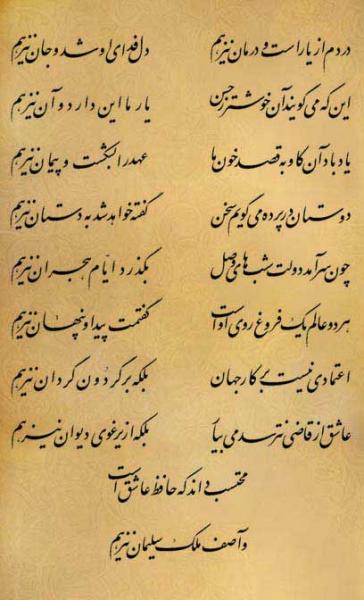 دردم از یار است و درمان نیز هم دل فدای او شد و جان نیز هم
این که می گویند آن خوشتر ز حسن یار ما این دارد و آن نیز هم
یاد باد آن کاو به قصد خون ما عهد را بشکست و پیمان نیز هم
دوستان در پرده می گویم سخن گفته خواهد شد به دستان نیز هم
چون سر آمد دولت شب های وصل بگذرد ایام هجران نیز هم
هر دو عالم یک فروغ روی او است گفتمت پیدا و پنهان نیز هم
اعتمادی نیست بر کار جهان بلکه بر گردون گردان نیز هم
عاشق از قاضی نترسد می بیار بلکه از یرغوی دیوان نیز هم
محتسب داند که حافظ عاشق است
و آصف ملک سلیمان نیز هم